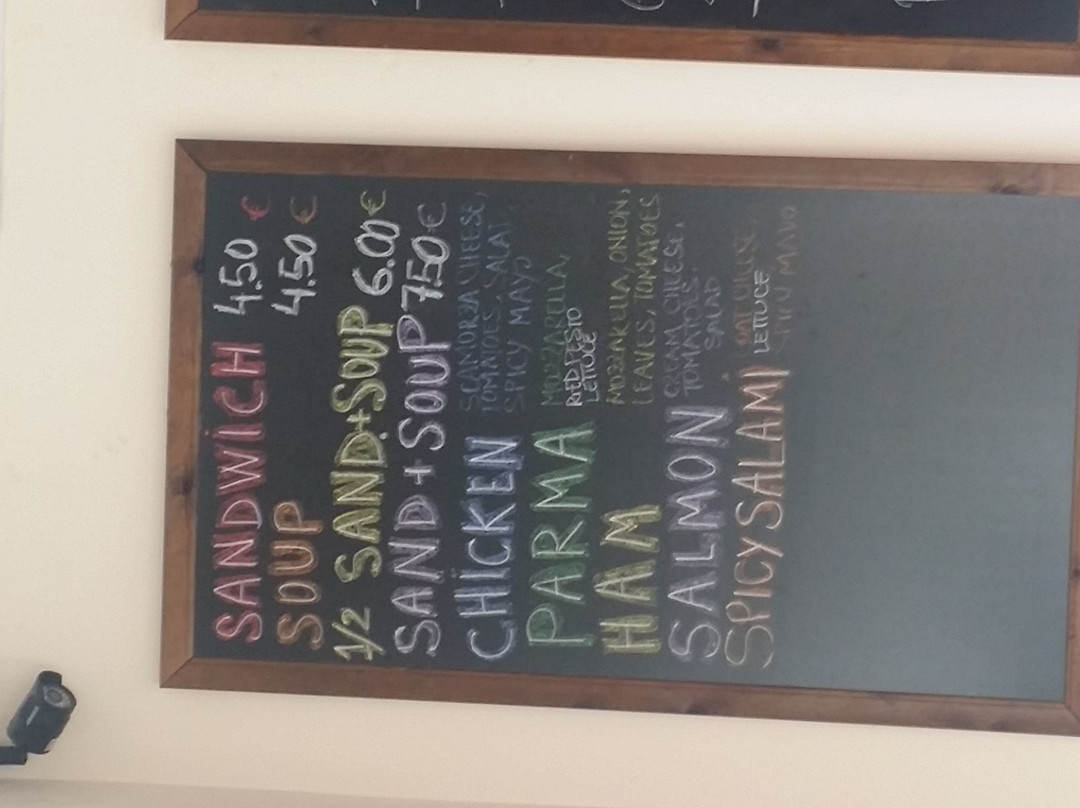 SANDWICH 4.50 €
SOUP 4.50 €
1/2 SAND+SOUP 6.00 €
SAND + SOUP 7.50 €
CHICKEN SCAMORZA CHEESE,
TOMATOES, SALAT,
SPICY MAYO
PARMA MOZZARELLA,
RED PESTO
LETTUCE
HAM MOZZARELLA, ONION,
LEAVES, TOMATOES
SALMON CREAM CHEESE,
TOMATOES,
SALAD
SPICY SALAMI CHEESE,
LETTUCE
SPICY MAYO